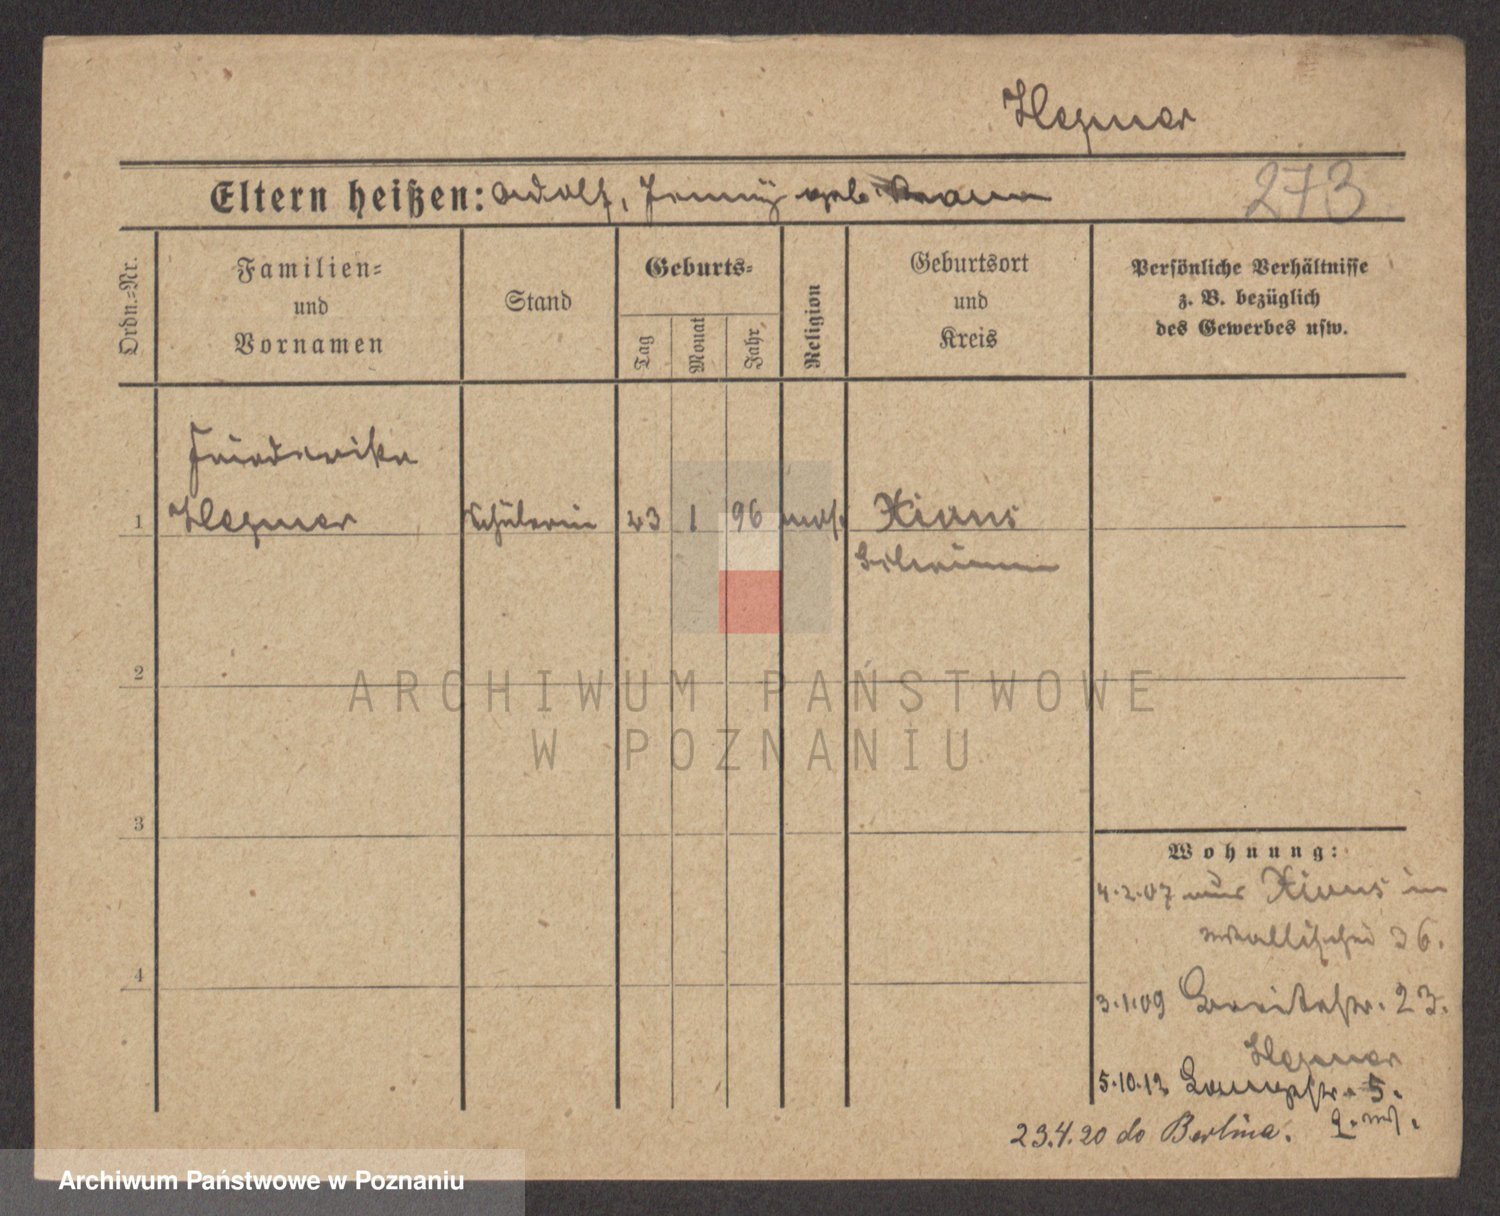 Hepner
Eltern heißen: Adolf, Jenny geb.
273
Ordn.=Nr.
Familien=
und
Vornamen
Stand
Geburts=
Tag
Monat
Jahr
Religion
Geburtsort
und
Kreis
Persönliche Verhältnisse
z. B. bezüglich
des Gewerbes usw.
Friederike
1 Hepner Schülerin 23 1 96 mos. Xions
Schrimm
2
ARCHIWUM PAŃSTWOWE
W POZNANIU
3
Wohnung:
4.2.07 aus Xions in
Wallischei 36.
4
3.1.09 Breitestr. 23.
Hepner
5.10.12 5.
23.4.20 do Berlina.
Archiwum Państwowe w Poznaniu